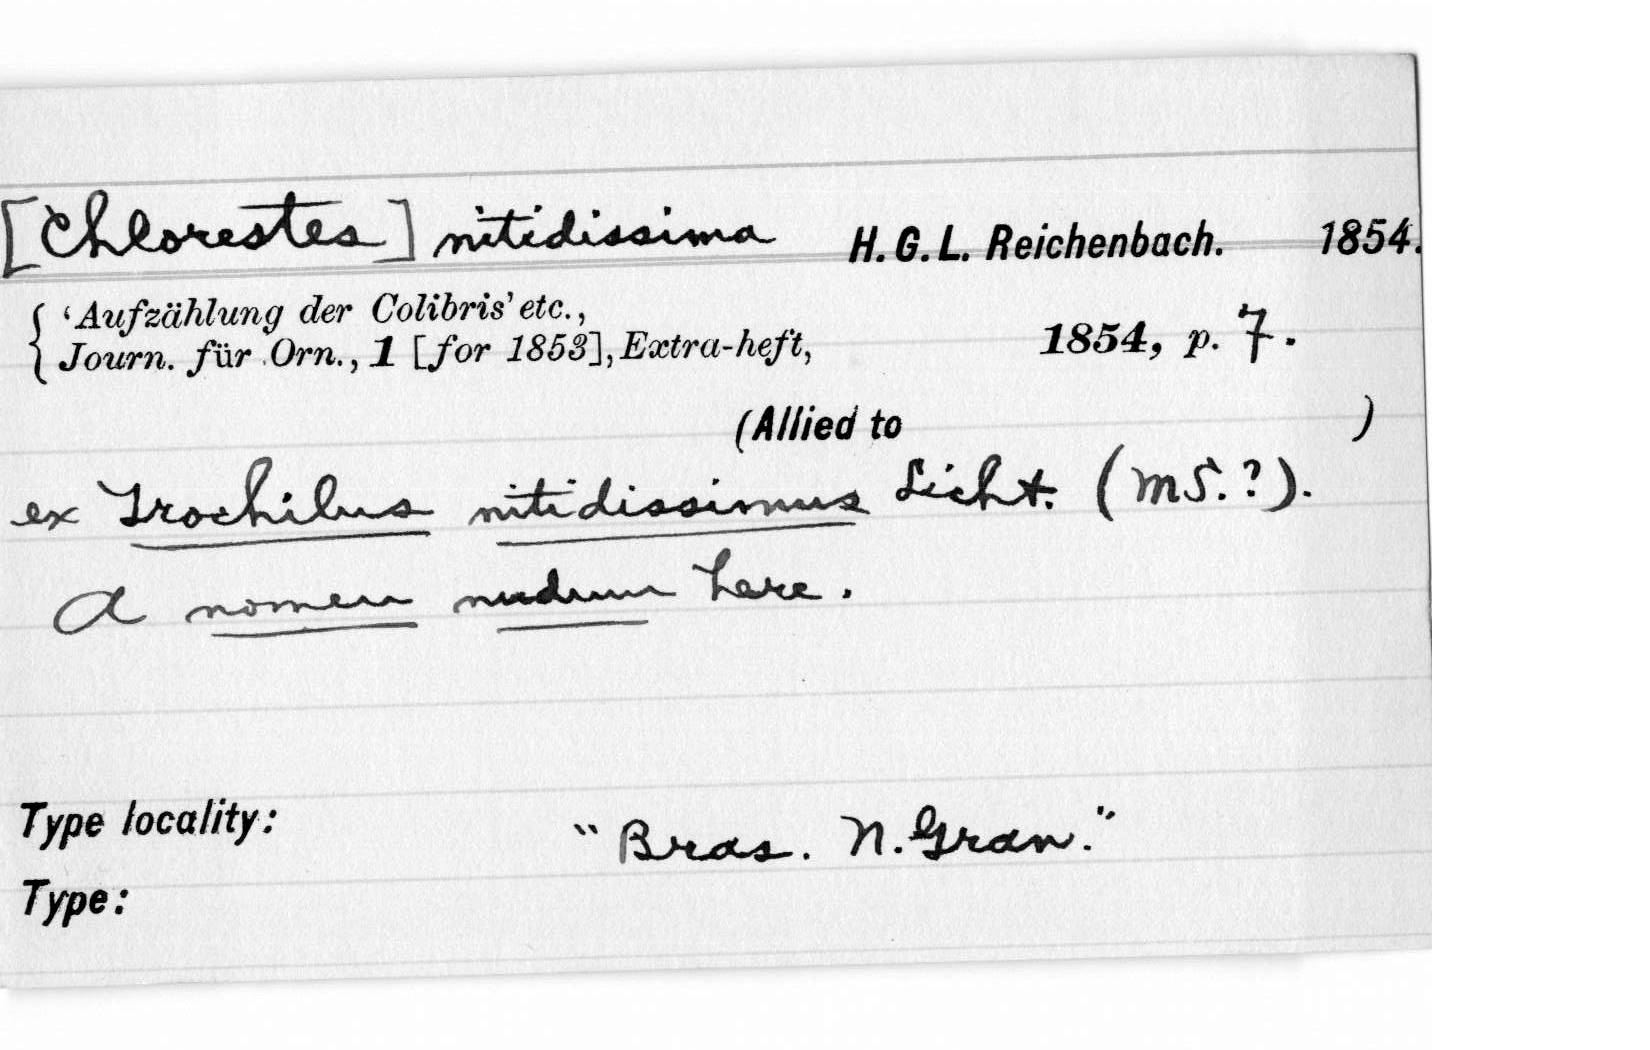 [Chlorestes] nitidissima H. G. L. Reichenbach. 1854.
'Aufzählung der Colibris' etc.,
Journ. für Orn., 1 [for 1853], Extra-heft, 1854, p. 7.
(Allied to )
ex Trochilus nitidissimus Licht. (MS.?).
A nomen nudum here.
Type locality: "Bras. N. Gran."
Type: